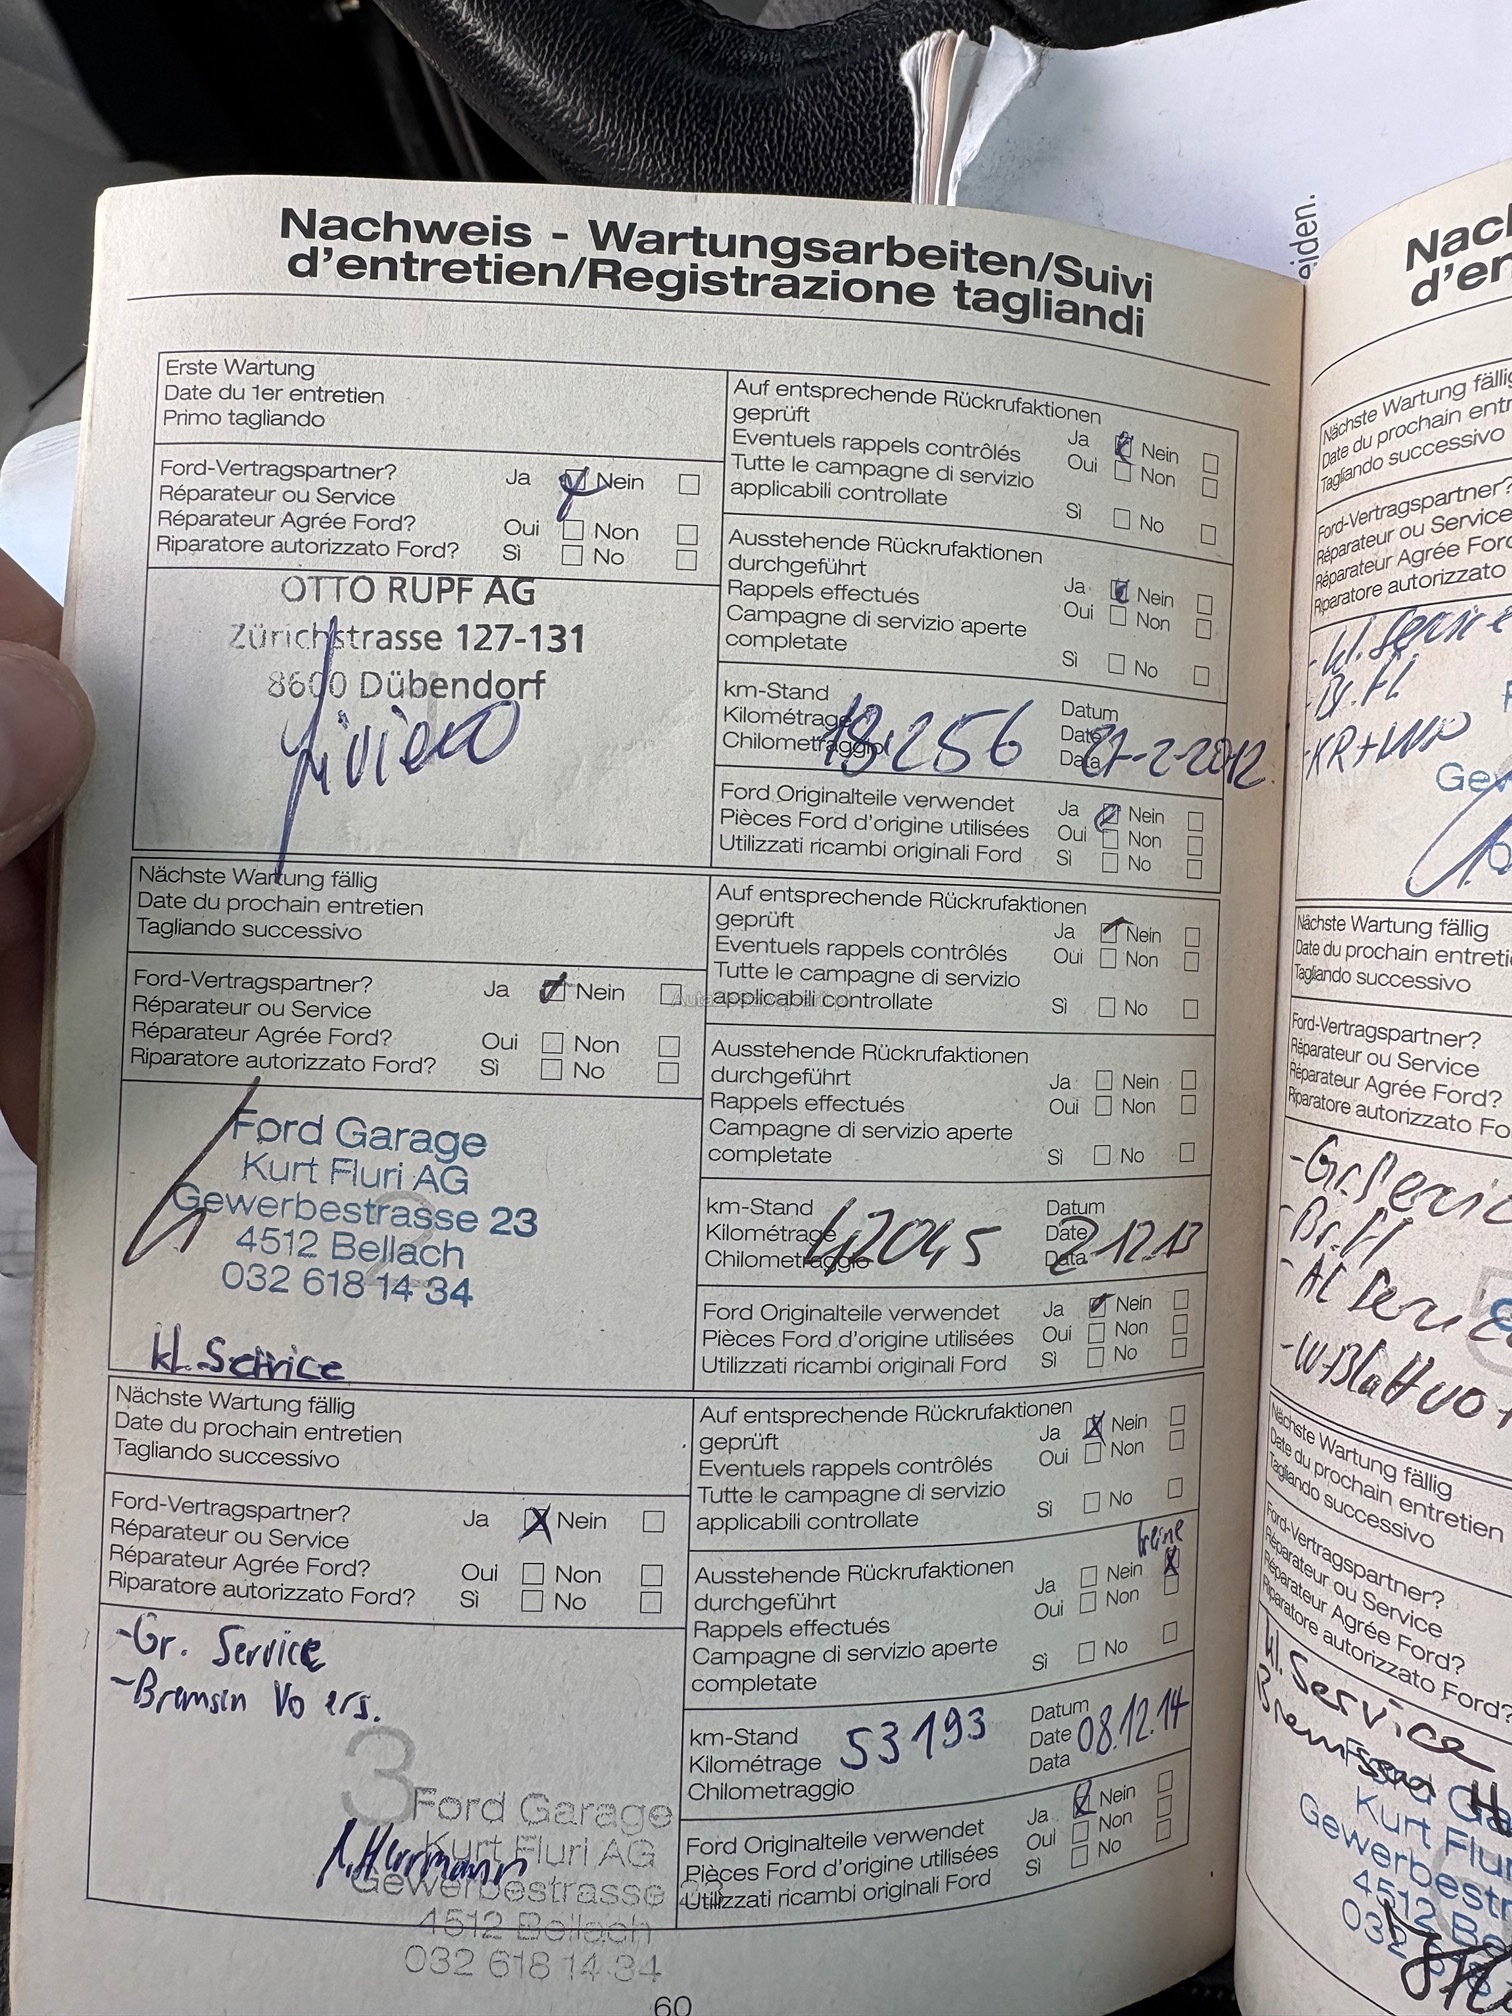 Nachweis - Wartungsarbeiten/Suivi
d'entretien/Registrazione tagliandi
Erste Wartung
Date du 1er entretien
Primo tagliando
Ford-Vertragspartner?
Réparateur ou Service
Réparateur Agrée Ford?
Riparatore autorizzato Ford?
Ja Nein
Oui Non
Sì No
OTTO RUPF AG
Zürichstrasse 127-131
8600 Dübendorf
1
Auf entsprechende Rückrufaktionen
geprüft
Eventuels rappels contrôlés
Tutte le campagne di servizio
applicabili controllate
Ja Nein
Oui Non
Sì No
Ausstehende Rückrufaktionen
durchgeführt
Rappels effectués
Campagne di servizio aperte
completate
Ja Nein
Oui Non
Sì No
km-Stand
Kilométrage
Chilometraggio
18256
Datum
Date
Data
27-2-2012
Ford Originalteile verwendet
Pièces Ford d'origine utilisées
Utilizzati ricambi originali Ford
Ja Nein
Oui Non
Sì No
Nächste Wartung fällig
Date du prochain entretien
Tagliando successivo
Ford-Vertragspartner?
Réparateur ou Service
Réparateur Agrée Ford?
Riparatore autorizzato Ford?
Ja Nein
Oui Non
Sì No
Ford Garage
Kurt Fluri AG
Gewerbestrasse 23
4512 Bellach
032 618 14 34
2
kl. Service
Auf entsprechende Rückrufaktionen
geprüft
Eventuels rappels contrôlés
Tutte le campagne di servizio
applicabili controllate
Ja Nein
Oui Non
Sì No
Ausstehende Rückrufaktionen
durchgeführt
Rappels effectués
Campagne di servizio aperte
completate
Ja Nein
Oui Non
Sì No
km-Stand
Kilométrage
Chilometraggio
42045
Datum
Date
Data
2.12.13
Ford Originalteile verwendet
Pièces Ford d'origine utilisées
Utilizzati ricambi originali Ford
Ja Nein
Oui Non
Sì No
Nächste Wartung fällig
Date du prochain entretien
Tagliando successivo
Ford-Vertragspartner?
Réparateur ou Service
Réparateur Agrée Ford?
Riparatore autorizzato Ford?
Ja Nein
Oui Non
Sì No
-Gr. Service
-Bremsen Vo ers.
3
Ford Garage
Kurt Fluri AG
Gewerbestrasse 23
4512 Bellach
032 618 14 34
Auf entsprechende Rückrufaktionen
geprüft
Eventuels rappels contrôlés
Tutte le campagne di servizio
applicabili controllate
Ja Nein
Oui Non
Sì No
keine
Ausstehende Rückrufaktionen
durchgeführt
Rappels effectués
Campagne di servizio aperte
completate
Ja Nein
Oui Non
Sì No
km-Stand
Kilométrage
Chilometraggio
53193
Datum
Date
Data
08.12.14
Ford Originalteile verwendet
Pièces Ford d'origine utilisées
Utilizzati ricambi originali Ford
Ja Nein
Oui Non
Sì No
60
eiden.
Nac
d'en
Nächste Wartung fällig
Date du prochain entr
Tagliando successivo
Ford-Vertragspartner?
Réparateur ou Service
Réparateur Agrée Ford
Riparatore autorizzato
-kl. Service
-Br. Fl
Nächste Wartung fällig
Date du prochain entreti
Tagliando successivo
Ford-Vertragspartner?
Réparateur ou Service
Réparateur Agrée Ford?
Riparatore autorizzato Fo
-Gr. Servic
-Br. Fl
-AC Servic
-W-Blatt vo
Nächste Wartung fällig
Date du prochain entretien
Tagliando successivo
Ford-Vertragspartner?
Réparateur ou Service
Réparateur Agrée Ford?
Riparatore autorizzato Ford?
kl. Service
Bremsen
Ford Ga
Kurt Flur
Gewerbestr
4512 Be